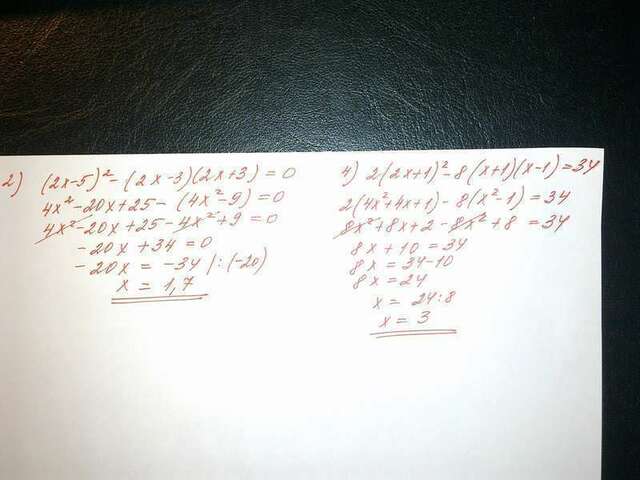 2) (2x-5)² - (2x-3)(2x+3) = 0
4x² - 20x + 25 - (4x² - 9) = 0
4x² - 20x + 25 - 4x² + 9 = 0
- 20x + 34 = 0
- 20x = -34 | : (-20)
x = 1,7
4) 2(2x+1)² - 8(x+1)(x-1) = 34
2(4x² + 4x + 1) - 8(x² - 1) = 34
8x² + 8x + 2 - 8x² + 8 = 34
8x + 10 = 34
8x = 34 - 10
8x = 24
x = 24 : 8
x = 3